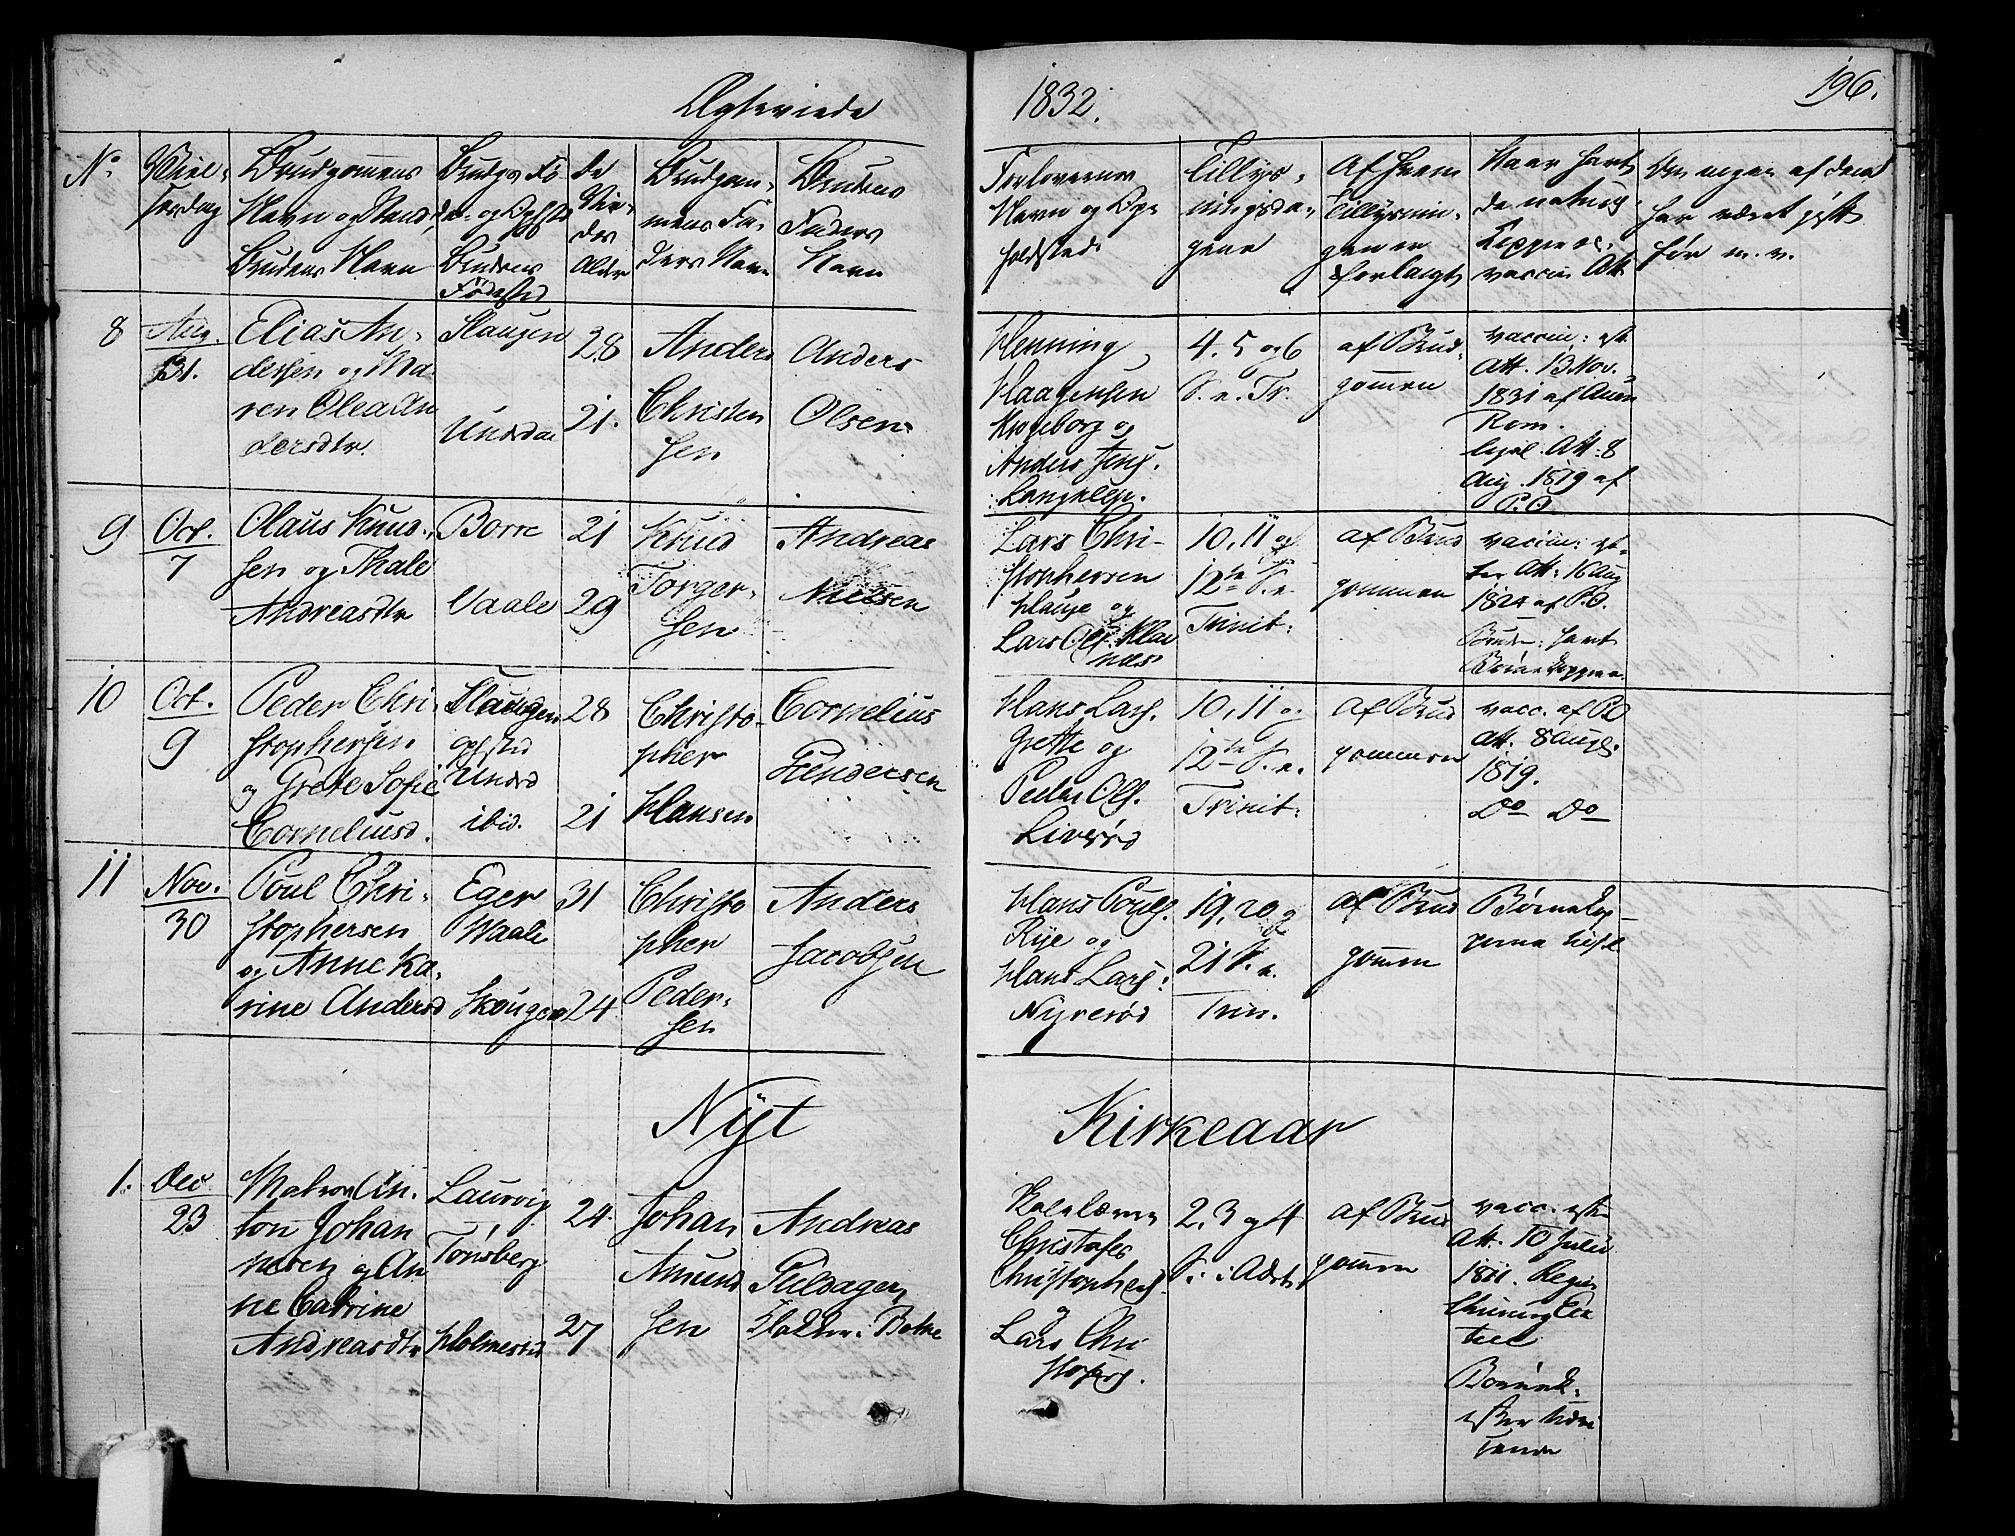 Ægteviede
1832.
196.
No.
Viel-
sesdag
Brudgommens
Navn og Stand,
Brudens Navn
Brudgs Fø
de- og Opholdst
Brudens
Fødested
De
Vie-
des
Alder
Brudgom-
mens Fa-
ders Navn
Brudens
Faders
Navn
Forlovernes
Navn og Op-
holdsted
Tillys-
ningsda-
gene
Af hvem
Tillysnin-
gen er
forlangt
Naar havt
de naturl.
Kopper el.
vaccin. Att.
Om nogen af dem
har været gift
før m. v.
8
Aug.
31.
Elias An-
dersen og Ma-
ren Olea An
dersdtr.
Slaugen
Undrdae
28
21.
Anders
Christen
sen
Anders
Olsen
Henning
Haagensen
Krogeborg og
Anders Jens.
Langeløp.
4. 5 og 6
S. e. Tr.
af Brud-
gommen
vaccin: eft
Att. 13 Nov.
1831 af
Rom.
ligel. Att. 8
Aug. 1819 af
P.O.
9
Oct.
7
Olaus Knud-
sen og Thale
Andreasdtr
Borre
Vaale
21
29
Knud
Torger-
sen
Andreas
Nielsen
Lars Chri-
stophersen
Hauge og
Lars Ols. Klav
næs
10, 11 og
12te S. e.
Trinit:
af Brud
gommen
vaccin: ef-
ter Att. 16 Aug
1825 af P.O.
Brud: havt
Børnekopperne
10
Oct.
9
Peder Chri-
stophersen
og Grete Sofie
Corneliusd.
Slaugen
opfsted
Undrd
ibid.
28
21
Christo-
pher
Hansen
Cornelius
Gundersen
Hans Lars.
Grette og
Peder Ols.
Liverød
10, 11 og
12te S. e.
Trinit:
af Brud
gommen
vacc. af PO
Att. 8 Aug.
1819.
Do Do
11
Nov.
30
Poul Chri-
stophersen
og Anne Ka-
rine Andersd
Eger
Waale
Skouger
31
24
Christo
pher
Peder-
sen
Anders
Jacobsen
Hans Pouls.
Rye og
Hans Lars.
Nyrerød
19, 20 og
21 S. e.
Trin.
af Brud
gommen
Børnekop-
perne ligel
Nyt
Kirkeaar
1.
Dec
23
Matros An-
ton Johan
nesen og An
ne Catrine
Andreasdtr
Laurvig
Tønsberg
Holmestd
24
27
Johan
Amund
sen
Andreas
Guldager
Botne
Christofer
Christophers.
og
Lars Chri
stofers.
2, 3 og 4
S. i Advt
af Brud
gommen
vacc. efter
Att. 10 Juli
1811. Regim
Chirurg
Børnek.
efter Udsi
ende